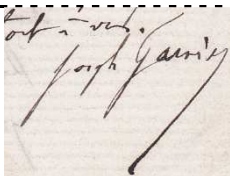 tout à vous.
Joseph Garnier